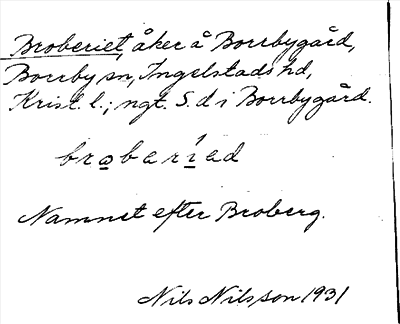 Broberiet, åker å Borrbygård,
Borrby sn, Ingelstads hd,
Krist. l.; ngt. S. d i Borrbygård.
brobaríed
Namnet efter Broberg.
Nils Nilsson 1931